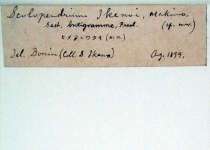 Scolopendrium Ikenoi, Makino
Sect. Antigramme, Presl. (sp. nov.)
Del. Bonin (Coll. S. Ikeno) Ag. 1899.